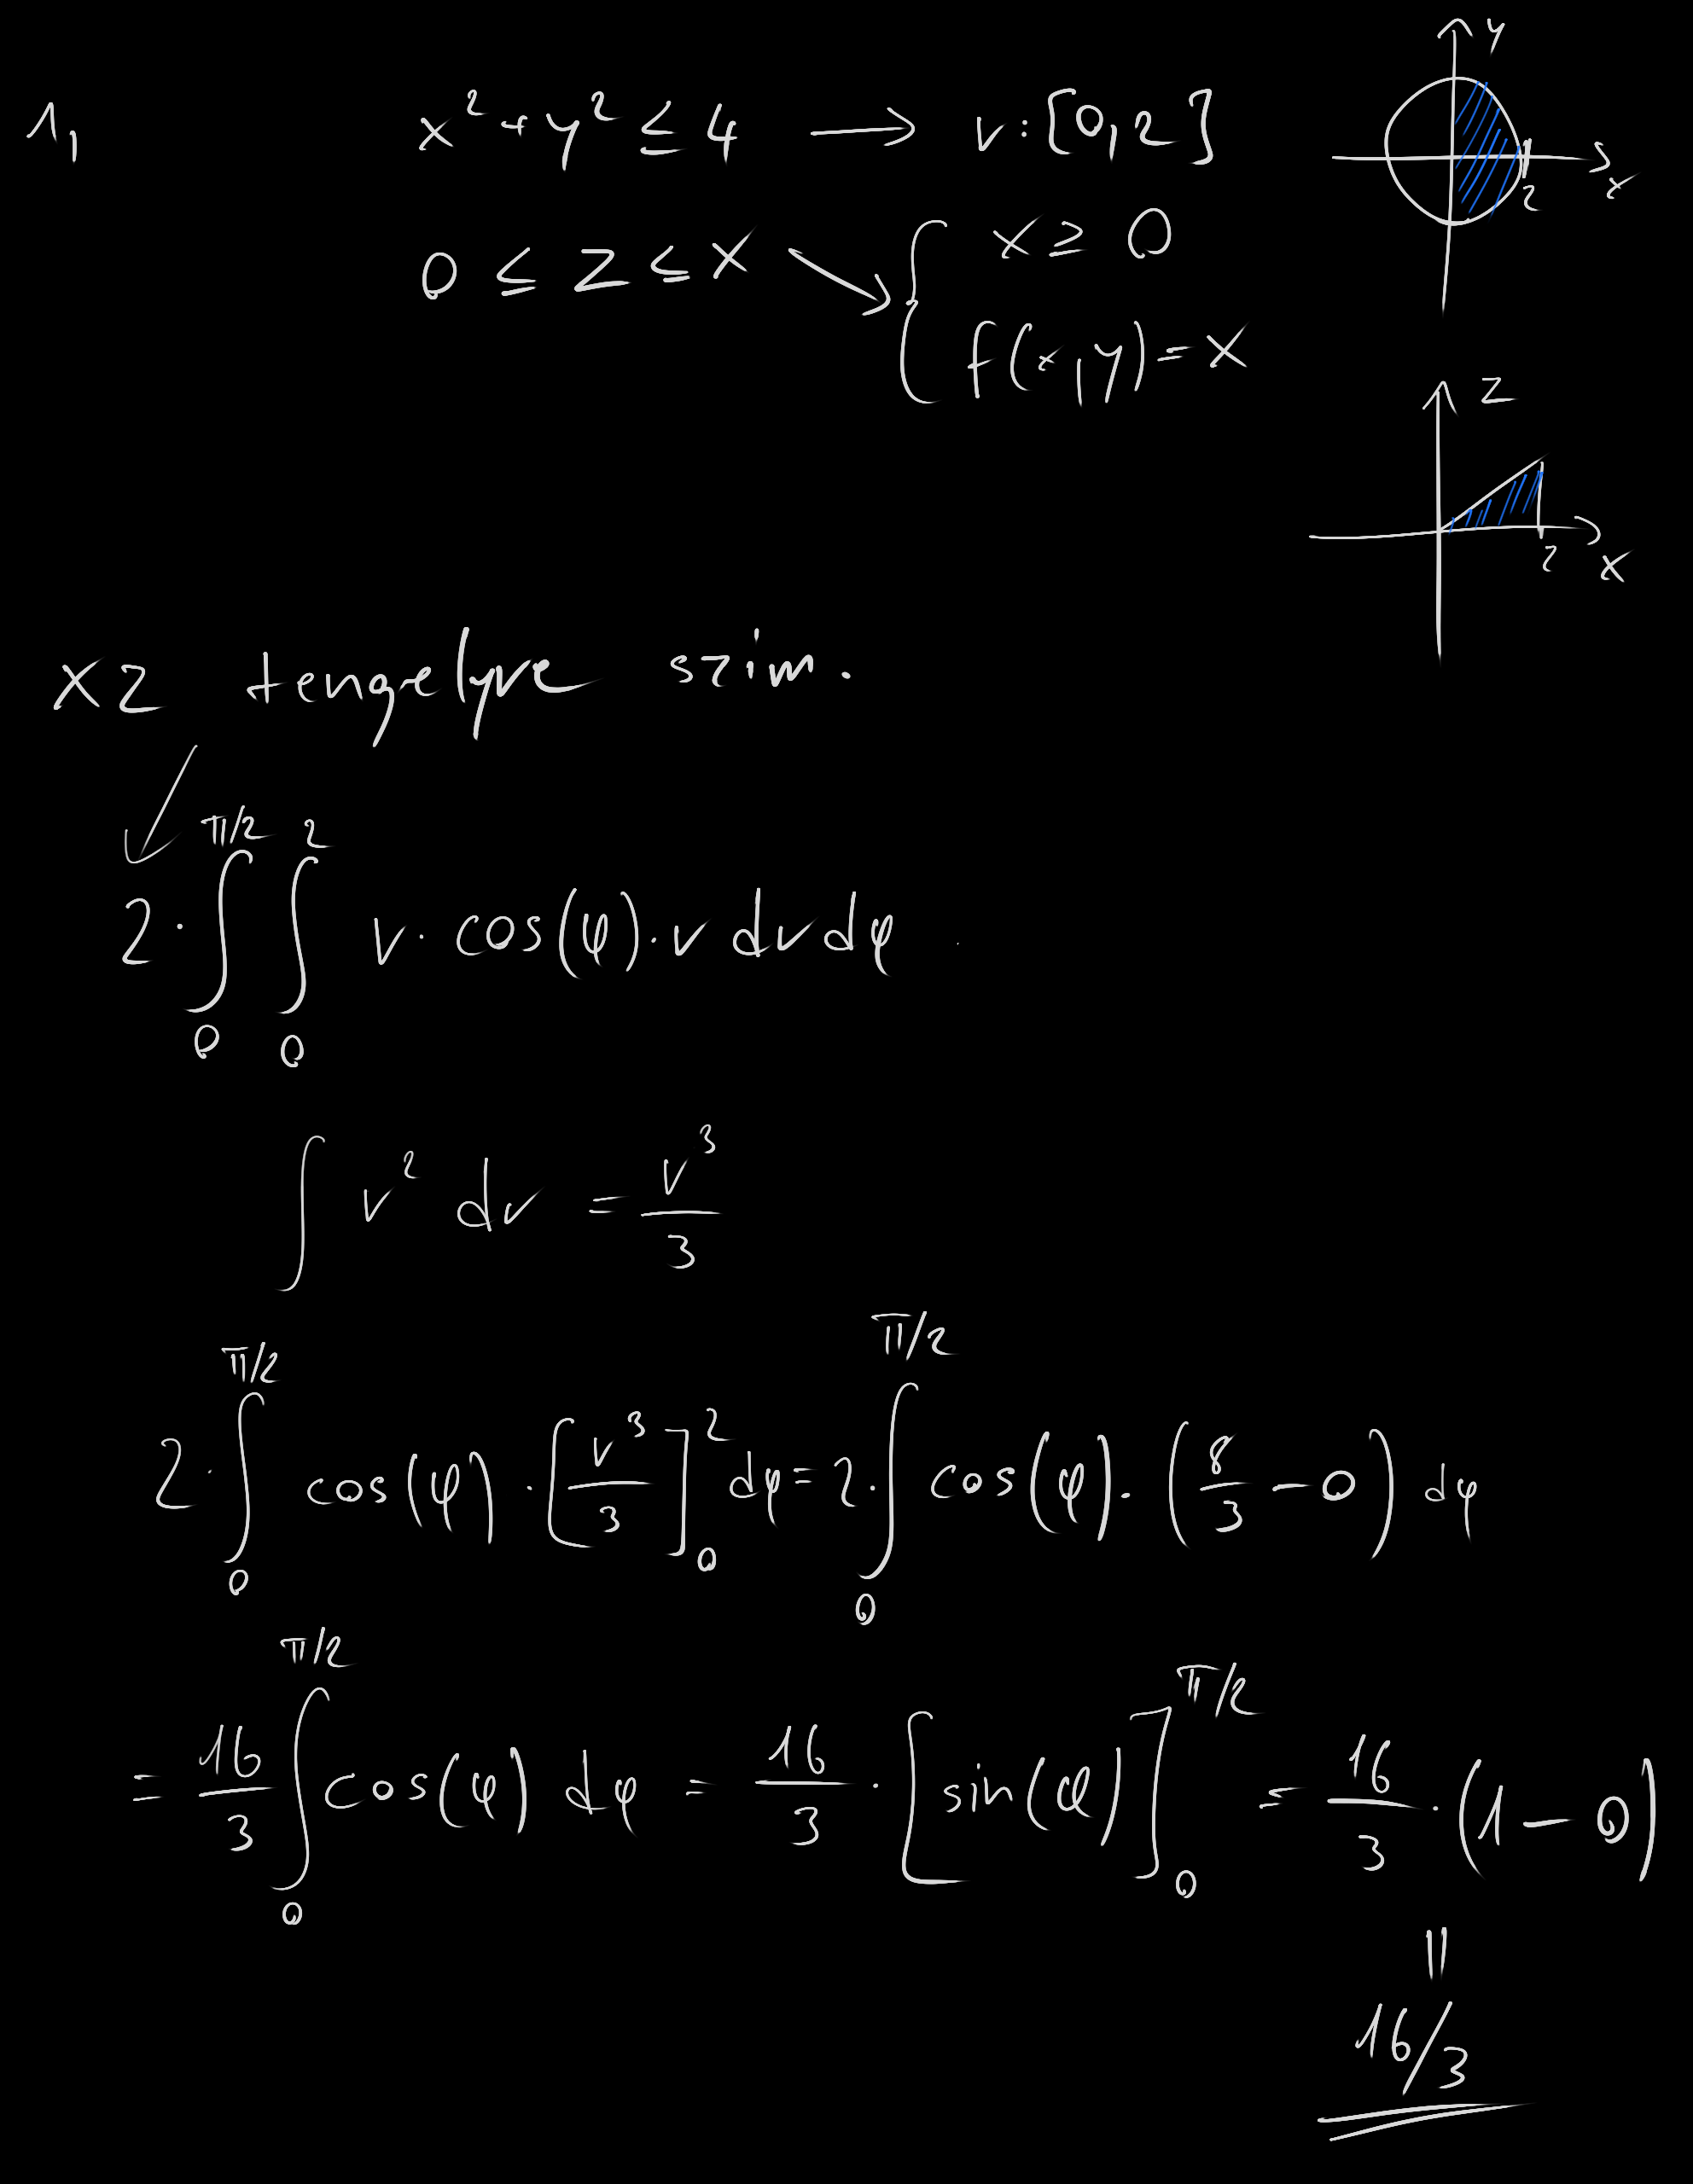 1,
x² + y² ≤ 4 → r: [0, 2]
y
x
2
0 ≤ z ≤ x ↘ { x ≥ 0
f(x,y) = x
z
x
2
xz tengelyre szim.
2 · ∫₀^{π/2} ∫₀^{2} r · cos(φ) · r dr dφ
∫ r² dr = r³/3
2 · ∫₀^{π/2} cos(φ) · [r³/3]₀² dφ = 2 · ∫₀^{π/2} cos(φ) · (8/3 − 0) dφ
= 16/3 ∫₀^{π/2} cos(φ) dφ = 16/3 · [sin(φ)]₀^{π/2} = 16/3 · (1 − 0)
=
16/3